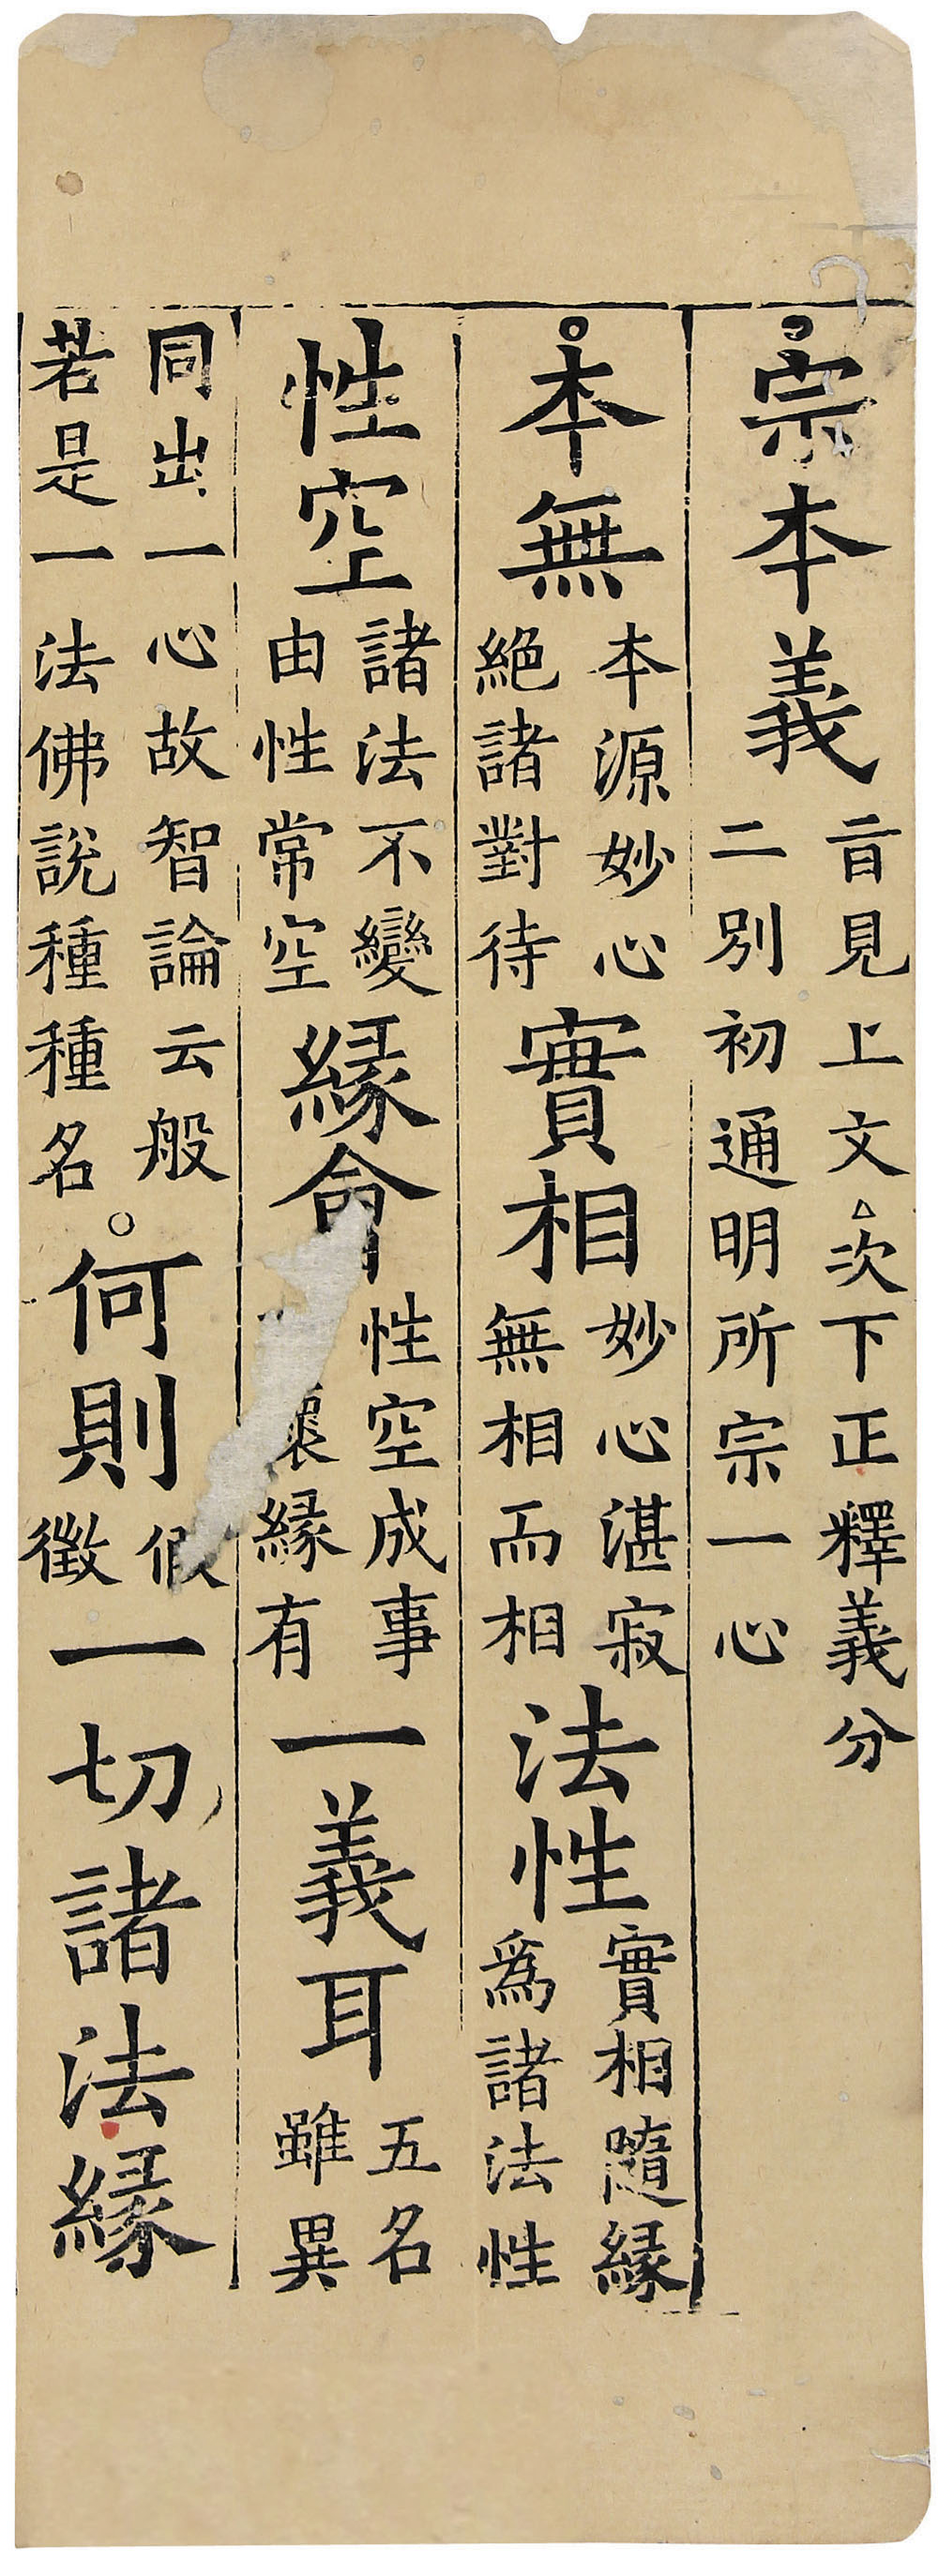 ○宗本義㫖見上文△次下正釋義分二別初通明所宗一心
○本無本源妙心絶諸對待實相妙心湛寂無相而相法性實相隨縁爲諸法性
性空諸法不變由性常空縁會性空成事壞縁有一義耳五名雖異
同出一心故智論云般若是一法佛說種種名○何則假徵一切諸法縁